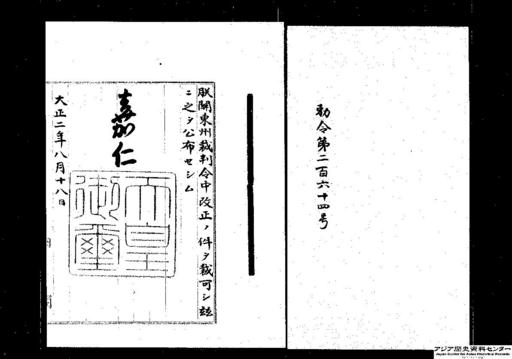 勅令第二百六十四号
朕関東州裁判令中改正ノ件ヲ裁可シ玆
ニ之ヲ公布セシム
嘉仁
天皇
御璽
大正二年八月十八日
アジア歴史資料センター
Japan Center for Asian Historical Records